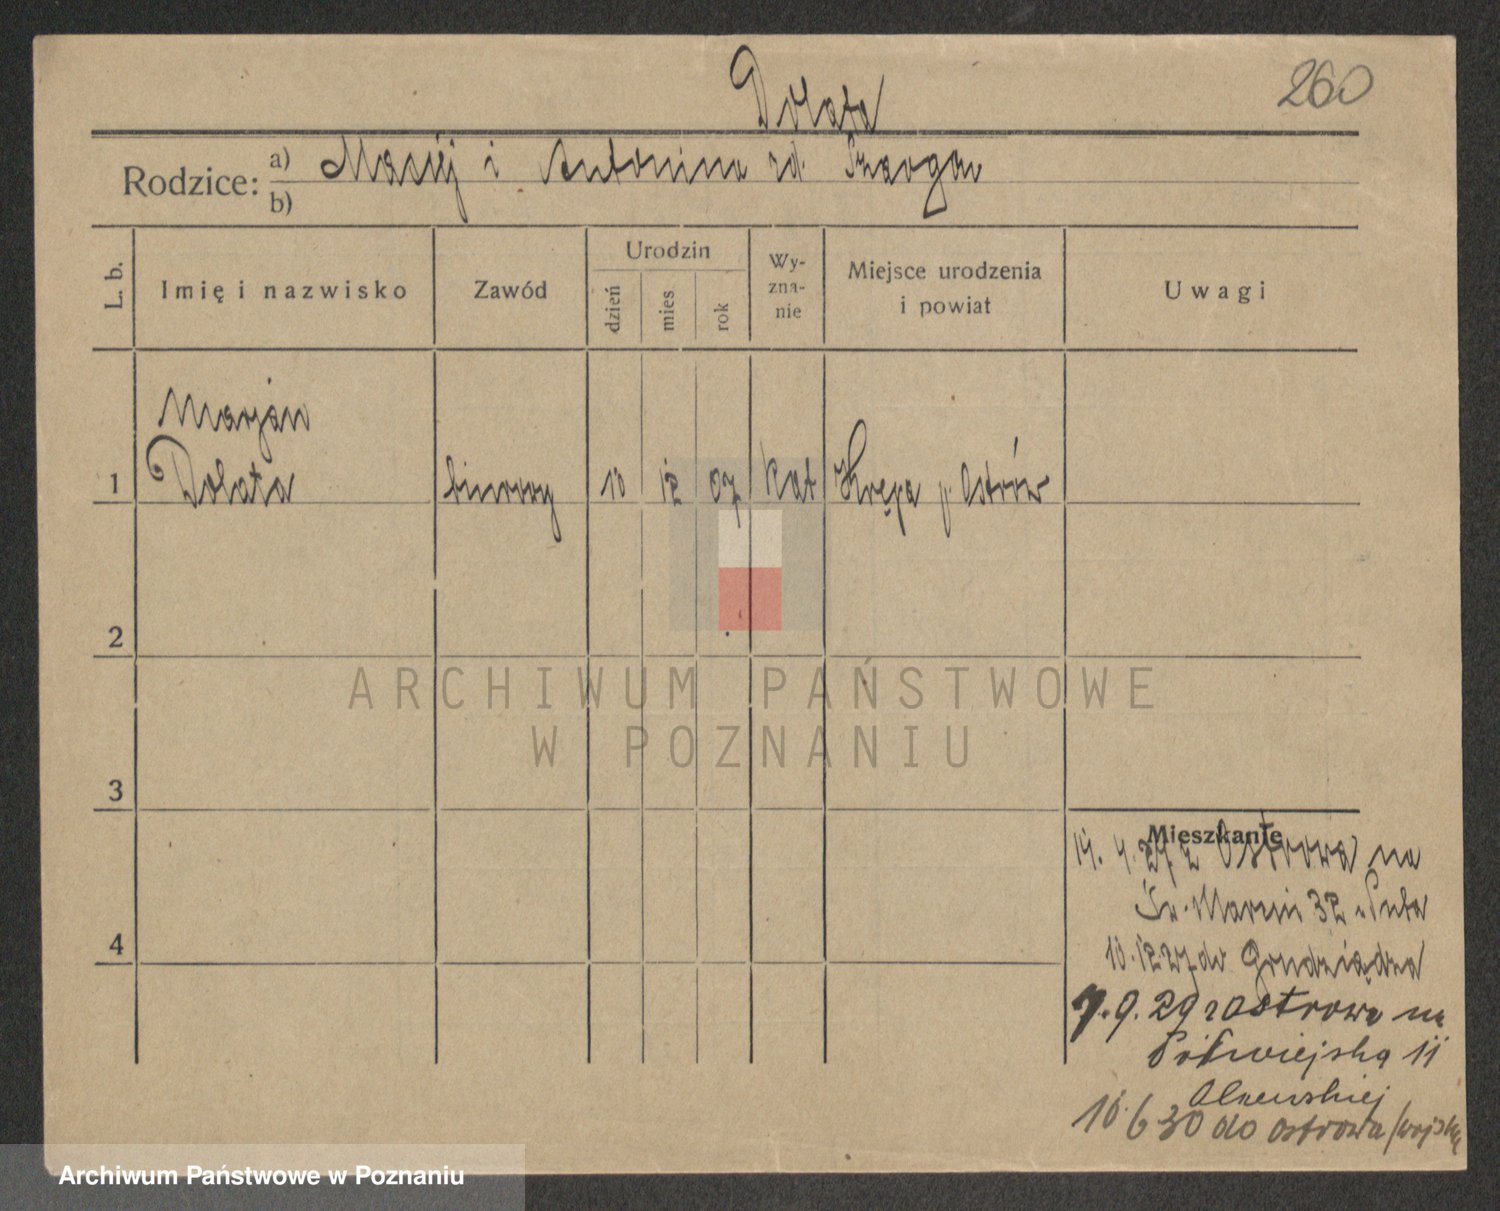 Dolata
260
Rodzice: a) Maciej i Antonina rd. Szarga
b)
L. b.
Imię i nazwisko
Zawód
Urodzin
dzień
mies
rok
Wy-
zna-
nie
Miejsce urodzenia
i powiat
Uwagi
Marjan
1 Dolata biurowy 10 12 07 kat Krępa p. Ostrów
2
ARCHIWUM PAŃSTWOWE
W POZNANIU
3
Mieszkanie
14. 4. 27 z Ostrowa na
Św. Marcin 32
10.12.27 do Grudziądza
7. 9. 29 z Ostrowa na
Półwiejską 11
4
10.6 30 do Ostrowa /wojsko
Archiwum Państwowe w Poznaniu